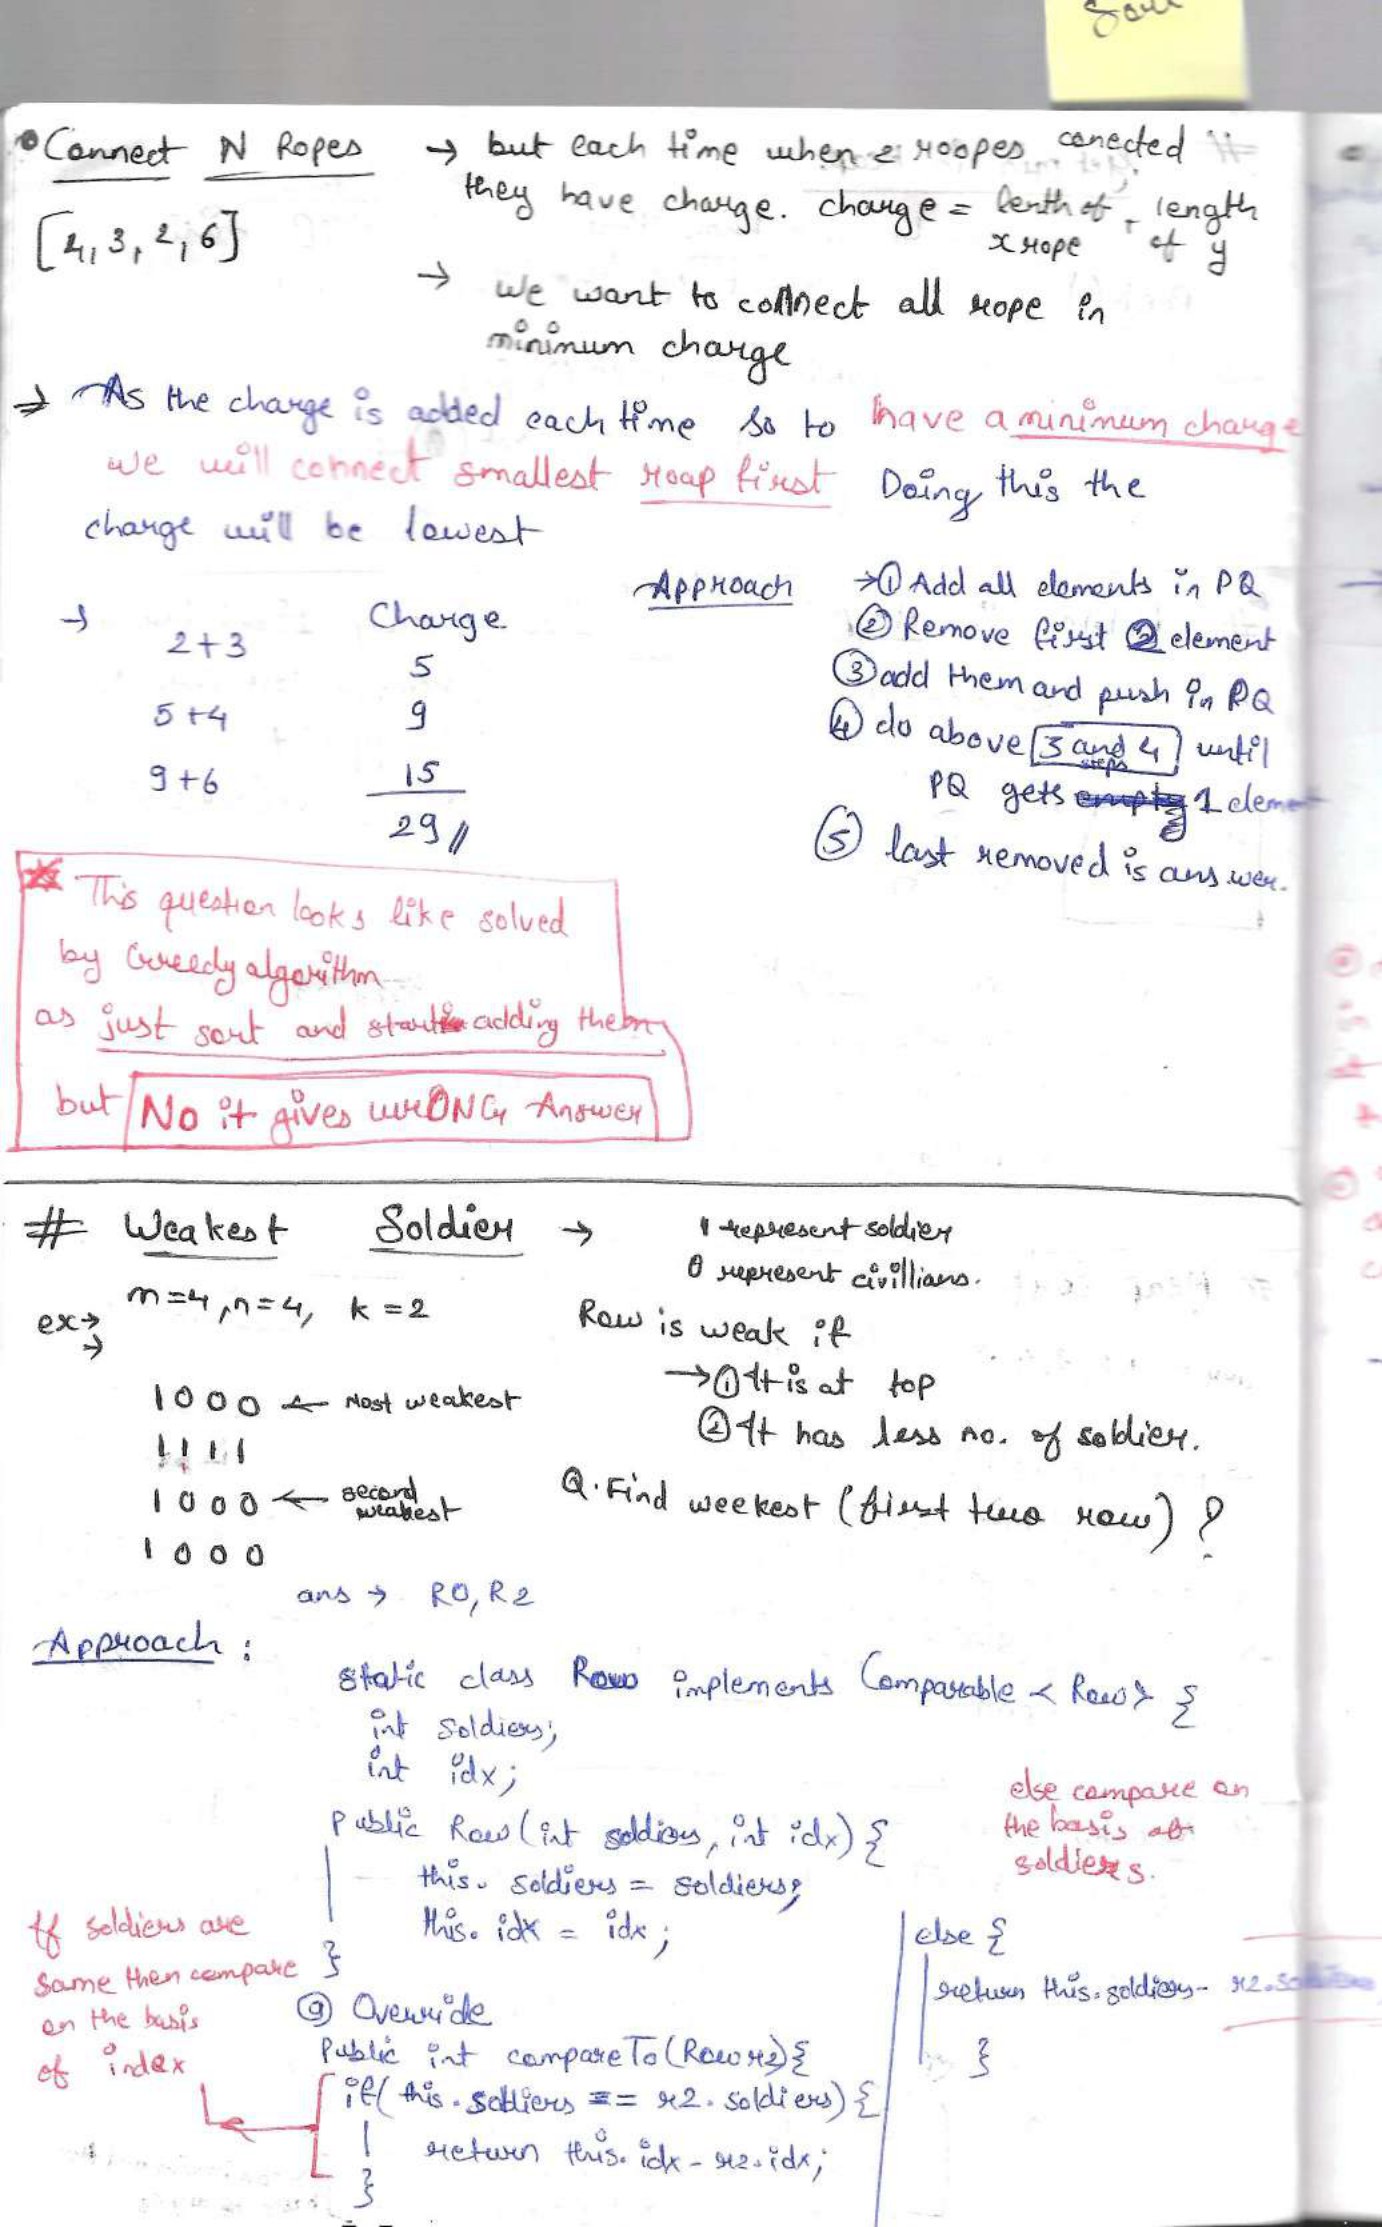 Connect N Ropes → but each time when 2 roopes conected
they have charge. charge = lenth of x rope + length of y
[4, 3, 2, 6]
→ we want to connect all rope in
mininum charge
→ As the charge is added each time so to have a mininum charge
we will connect smallest roap first Doing this the
charge will be lowest
→ Charge
2+3 5
5+4 9
9+6 15
29 //
Approach → ① Add all elements in PQ
② Remove first 2 element
③ add them and push in PQ
④ do above 3 and 4 steps until
PQ gets empty 1 elem
⑤ last removed is answer.
This question looks like solved
by Greedy algorithm
as just sort and start adding them
but No it gives wrONG Answer
# Weakest Soldier → 1 represent soldier
0 represent civillians.
ex → m=4, n=4, k=2
→
Row is weak if
→ ① It is at top
② It has less no. of soldier.
1000 ← Most weakest
1111
1000 ← second weakest
1000
Q. Find weekest (first two row) ?
ans → R0, R2
Approach :
static class Row implements Comparable < Row> {
int soldiers;
int idx;
public Row (int soldiers, int idx) {
this. soldiers = soldiers;
this. idx = idx;
}
@ Override
Public int compareTo (Row r2) {
if( this. soldiers == r2. soldiers) {
return this. idx - r2. idx;
}
If soldiers are
same then compare
on the basis
of index
else compare on
the basis of
soldiers.
else {
return this. soldiers - r2. soldiers
}